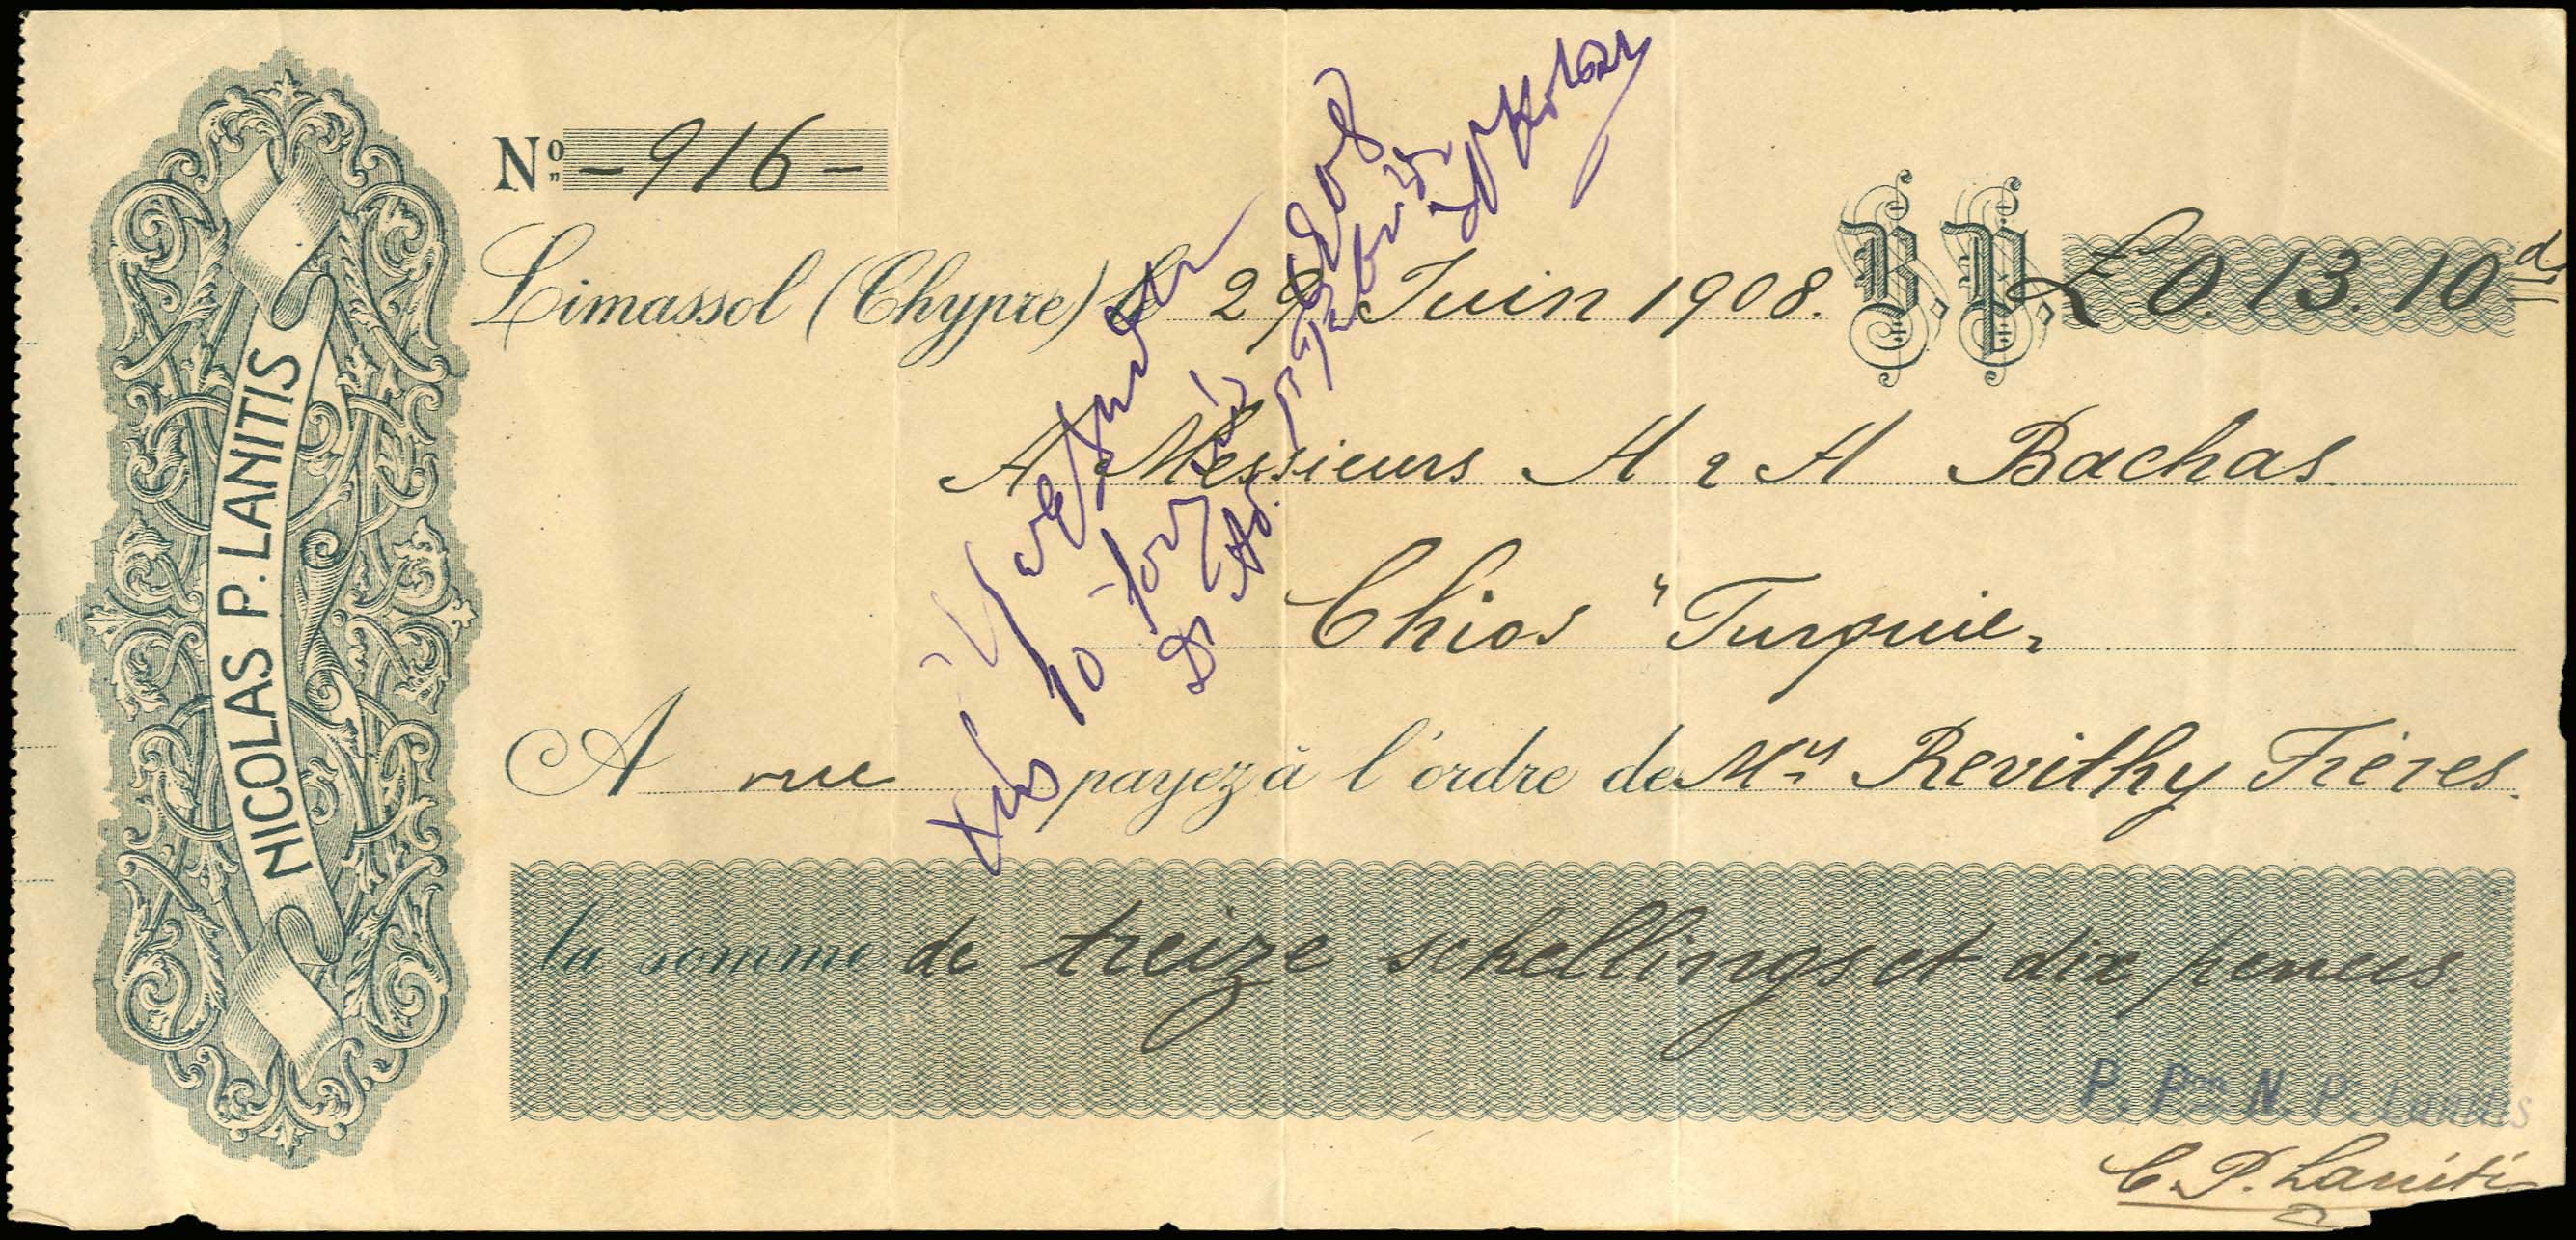 NICOLAS P. LANITIS
Nº - 916 -
Limassol (Chypre) le 29 Juin 1908. B.P. £ 0.13.10d
A Messieurs A & A Bachas
Chios "Turquie"
A vue payez à l'ordre de Mrs Revithy Frères.
la somme de treize schellings et dix pences.
P. Pon N. P. Lanitis
C. P. Laniti